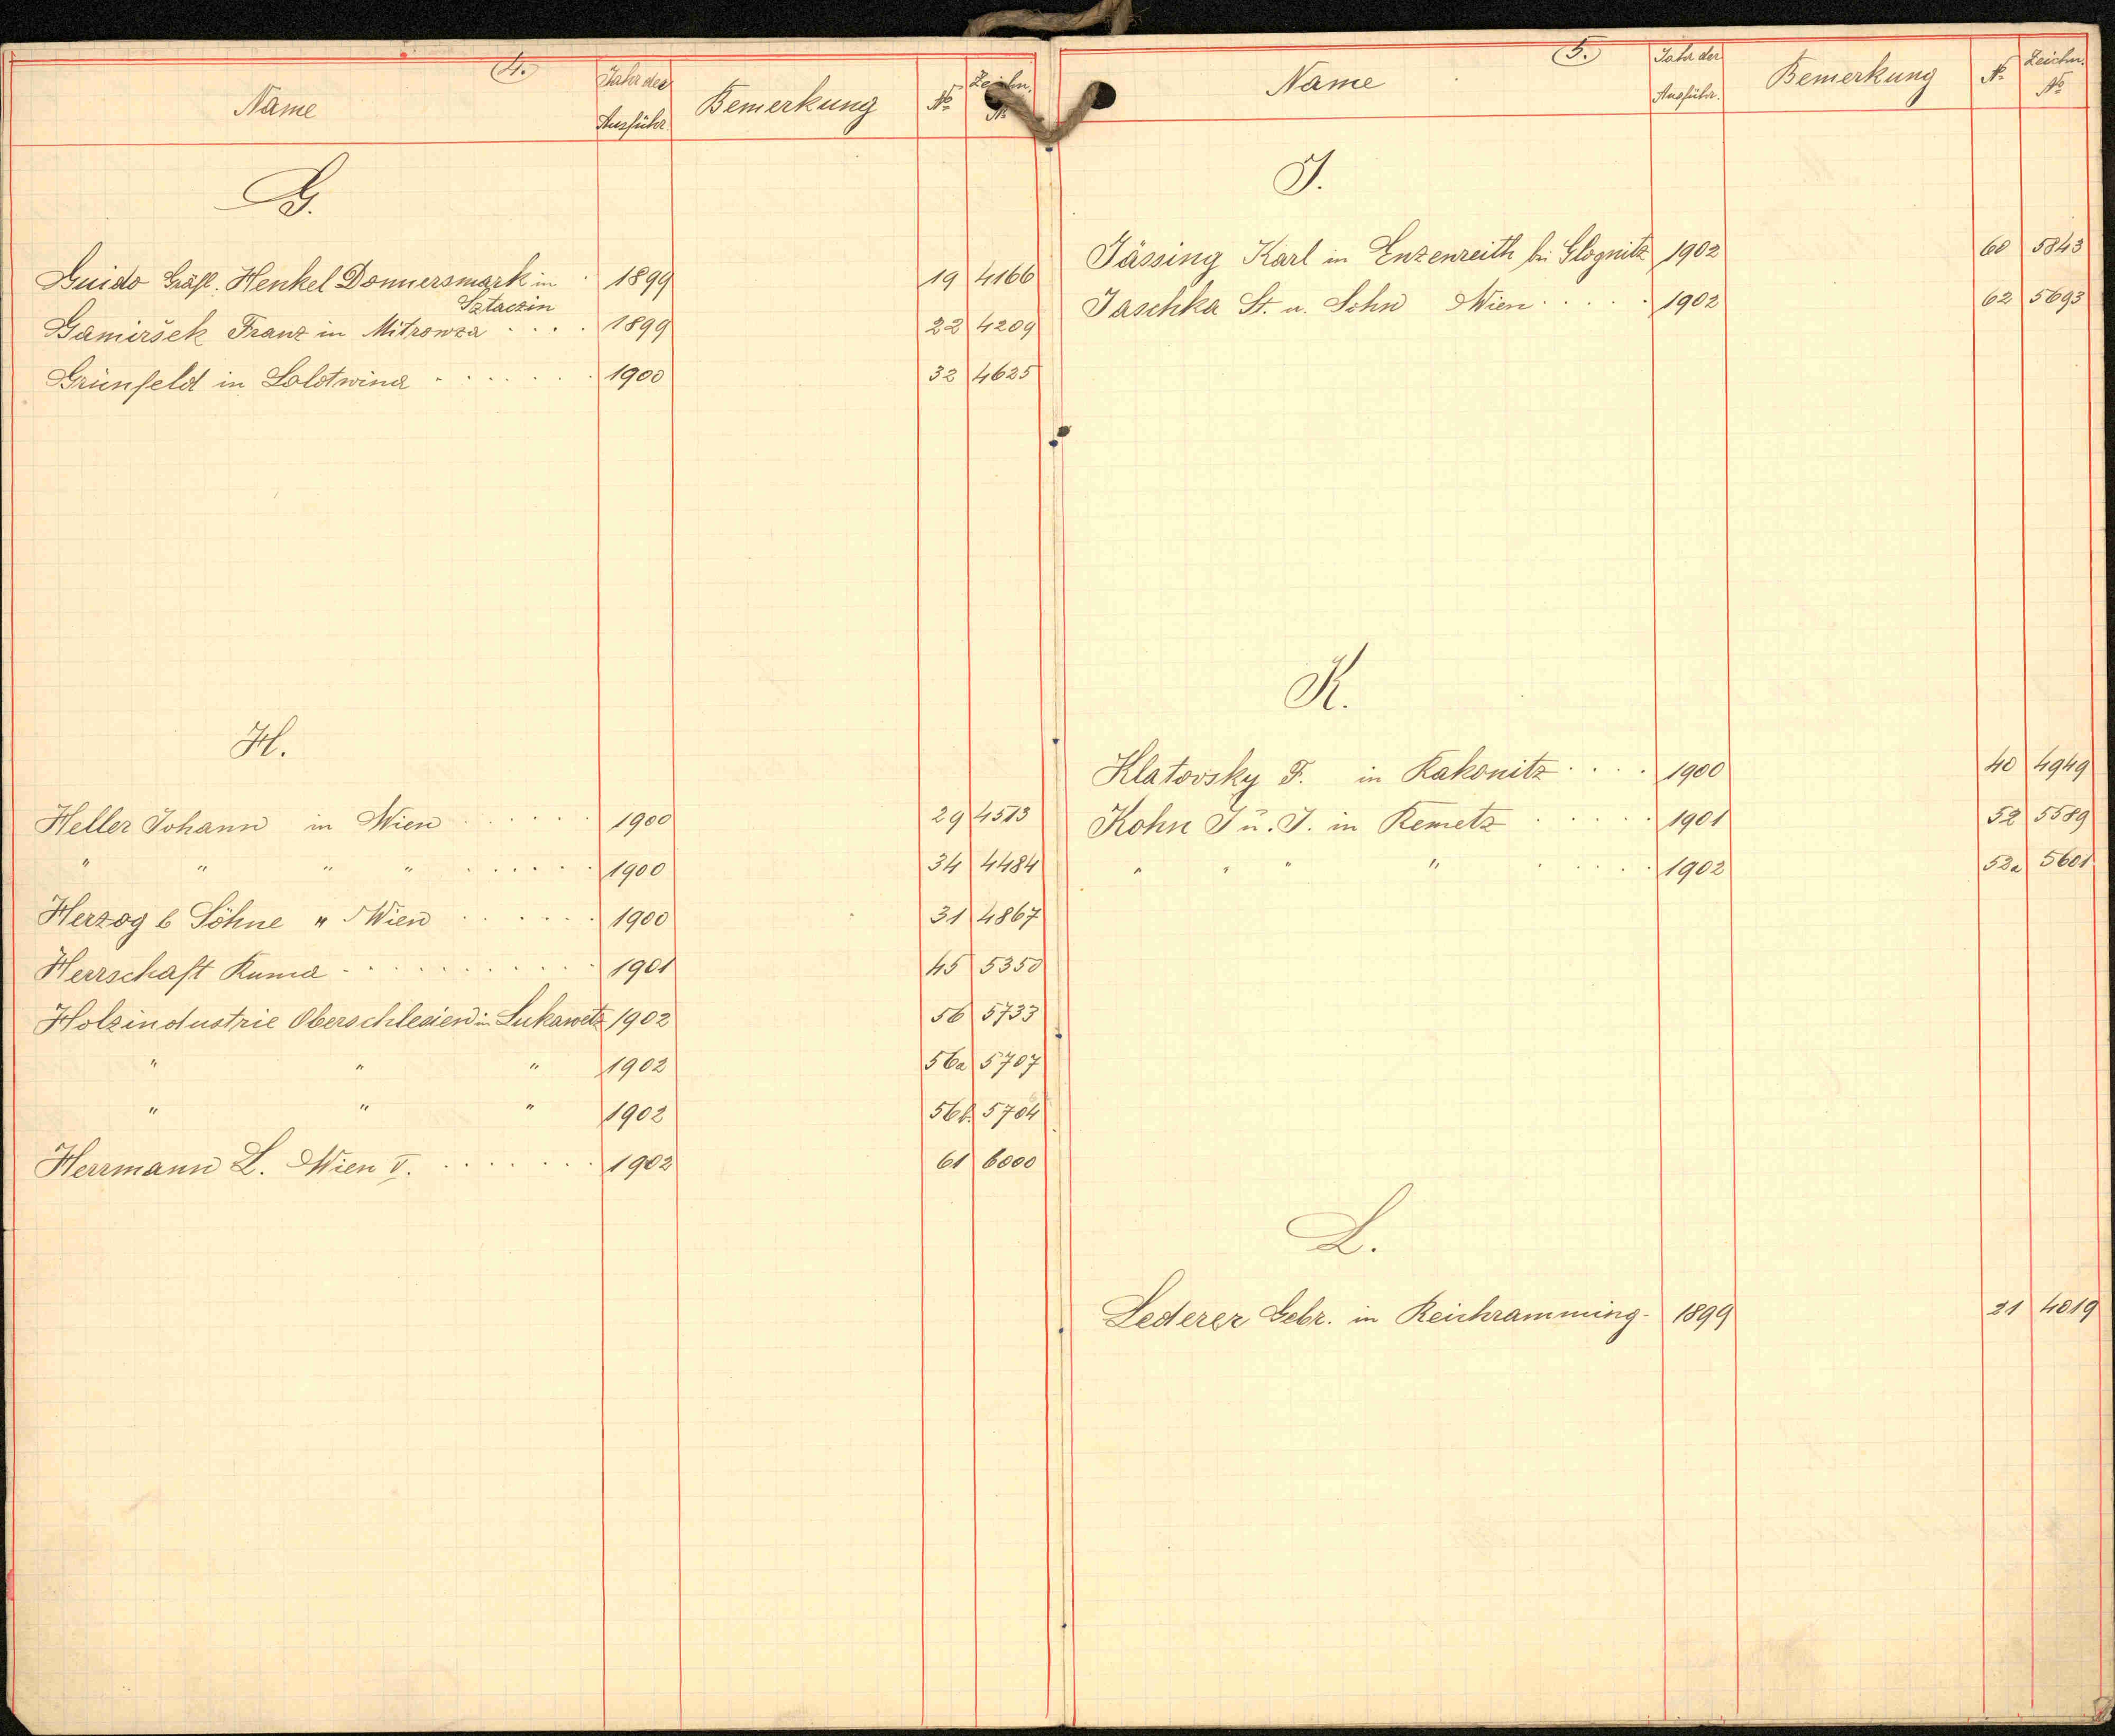 4.
Name Jahr der Ausführ. Bemerkung No Zeichn. No
G.
Guido Gräfl. Henkel Donnersmark in Sztaczin 1899 19 4166
Gamiršek Franz in Mitrowza 1899 22 4209
Grünfeld in Solotwina 1900 32 4625
H.
Heller Johann in Wien 1900 29 4513
" " " " 1900 34 4484
Herzog & Söhne " Wien 1900 31 4867
Herrschaft Ruma 1901 45 5350
Holzindustrie Oberschlesien in Lukawetz 1902 56 5733
" " " 1902 56a 5707
" " " 1902 56b. 5704
Herrmann L. Wien V. 1902 61 6000
5.
Name Jahr der Ausführ. Bemerkung No Zeichn. No
J.
Jässing Karl in Enzenreith bei Glognitz 1902 60 5843
Jaschka St. u. Sohn Wien 1902 62 5693
K.
Klatovsky F. in Rakonitz 1900 40 4949
Kohn J u. J. in Remetz 1901 52 5589
" " " " 1902 52a 5601
L.
Lederer Gebr. in Reichramming 1899 21 4019